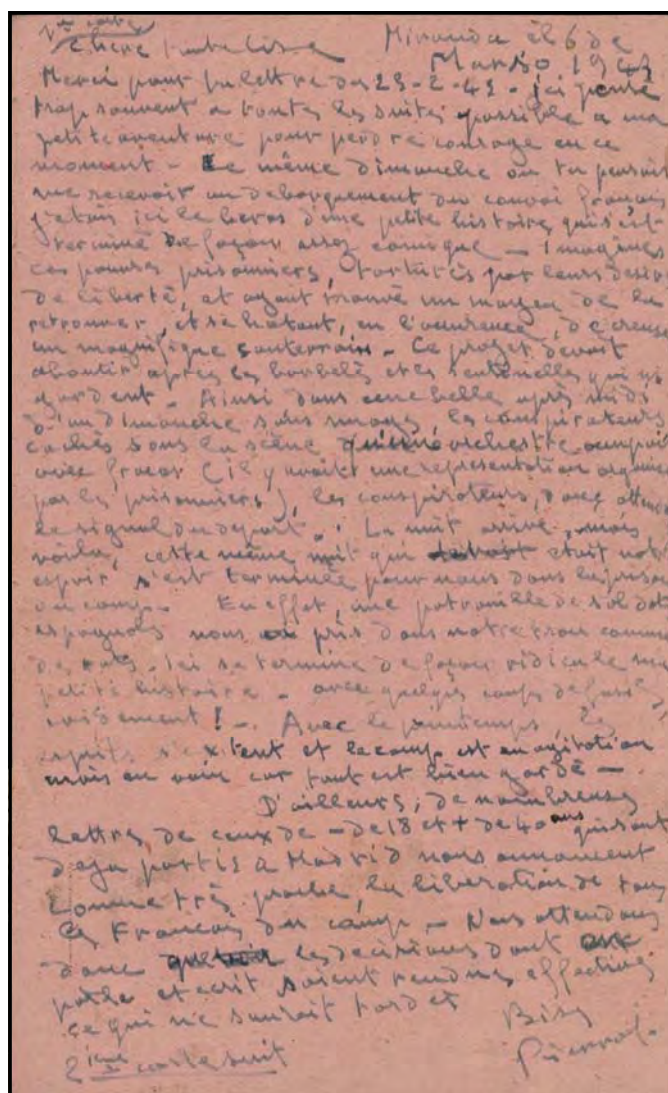 1ère carte
Chère petite Lise Miranda el 6 de
Marzo 1943
Merci pour ta lettre du 23-2-43 - j'ai pensé
trop souvent a toutes les suites possible a ma
petite aventure pour perdre courage en ce
moment - Le même dimanche ou tu pensais
me recevoir au debarquement du convoi français
j'étais ici le heros d'une petite histoire qui s'est
terminé de façon assez comique - Imagines
ces pauvres prisonniers, torturés par leurs desir
de liberté, et ayant trouvé un moyen de la
retrouver, et se hatant, en l'occurence, de creuser
un magnifique souterrain - Ce projet devait
aboutir après les barbelés et les sentinelles qui
gardent - Ainsi dans une belle après midi
d'un dimanche sans nuages les conspirateurs
cachés sous la scène qu'une orchestre occupait
avec fracas (il y avait une representation organisée
par les prisonniers), les conspirateurs, donc, attend
le signal du depart. La nuit arrive, mais
voila, cette même nuit qui etait notre
espoir s'est terminée pour nous dans la prison
du camp - En effet, une patrouille de soldats
espagnols nous a pris dans notre trou comme
des rats - Ici se termine de façon ridicule ma
petite histoire - avec quelques coups de fusils
! - Avec le printemps, les
esprits s'extent et le camp est en agitation
mais en vain car tout est bien gardé -
D'ailleurs, de nombreuses
lettres de ceux de - de 18 et + de 40 ans qui sont
deja partis a Madrid nous annoncent
comme très proche, la liberation de tous
les Français du camp - Nous attendons
donc les decisions dont on
parle et ecrit soient rendues effectives
ce qui ne saurait tarder
Bises
Pierrot
2ième carte suit